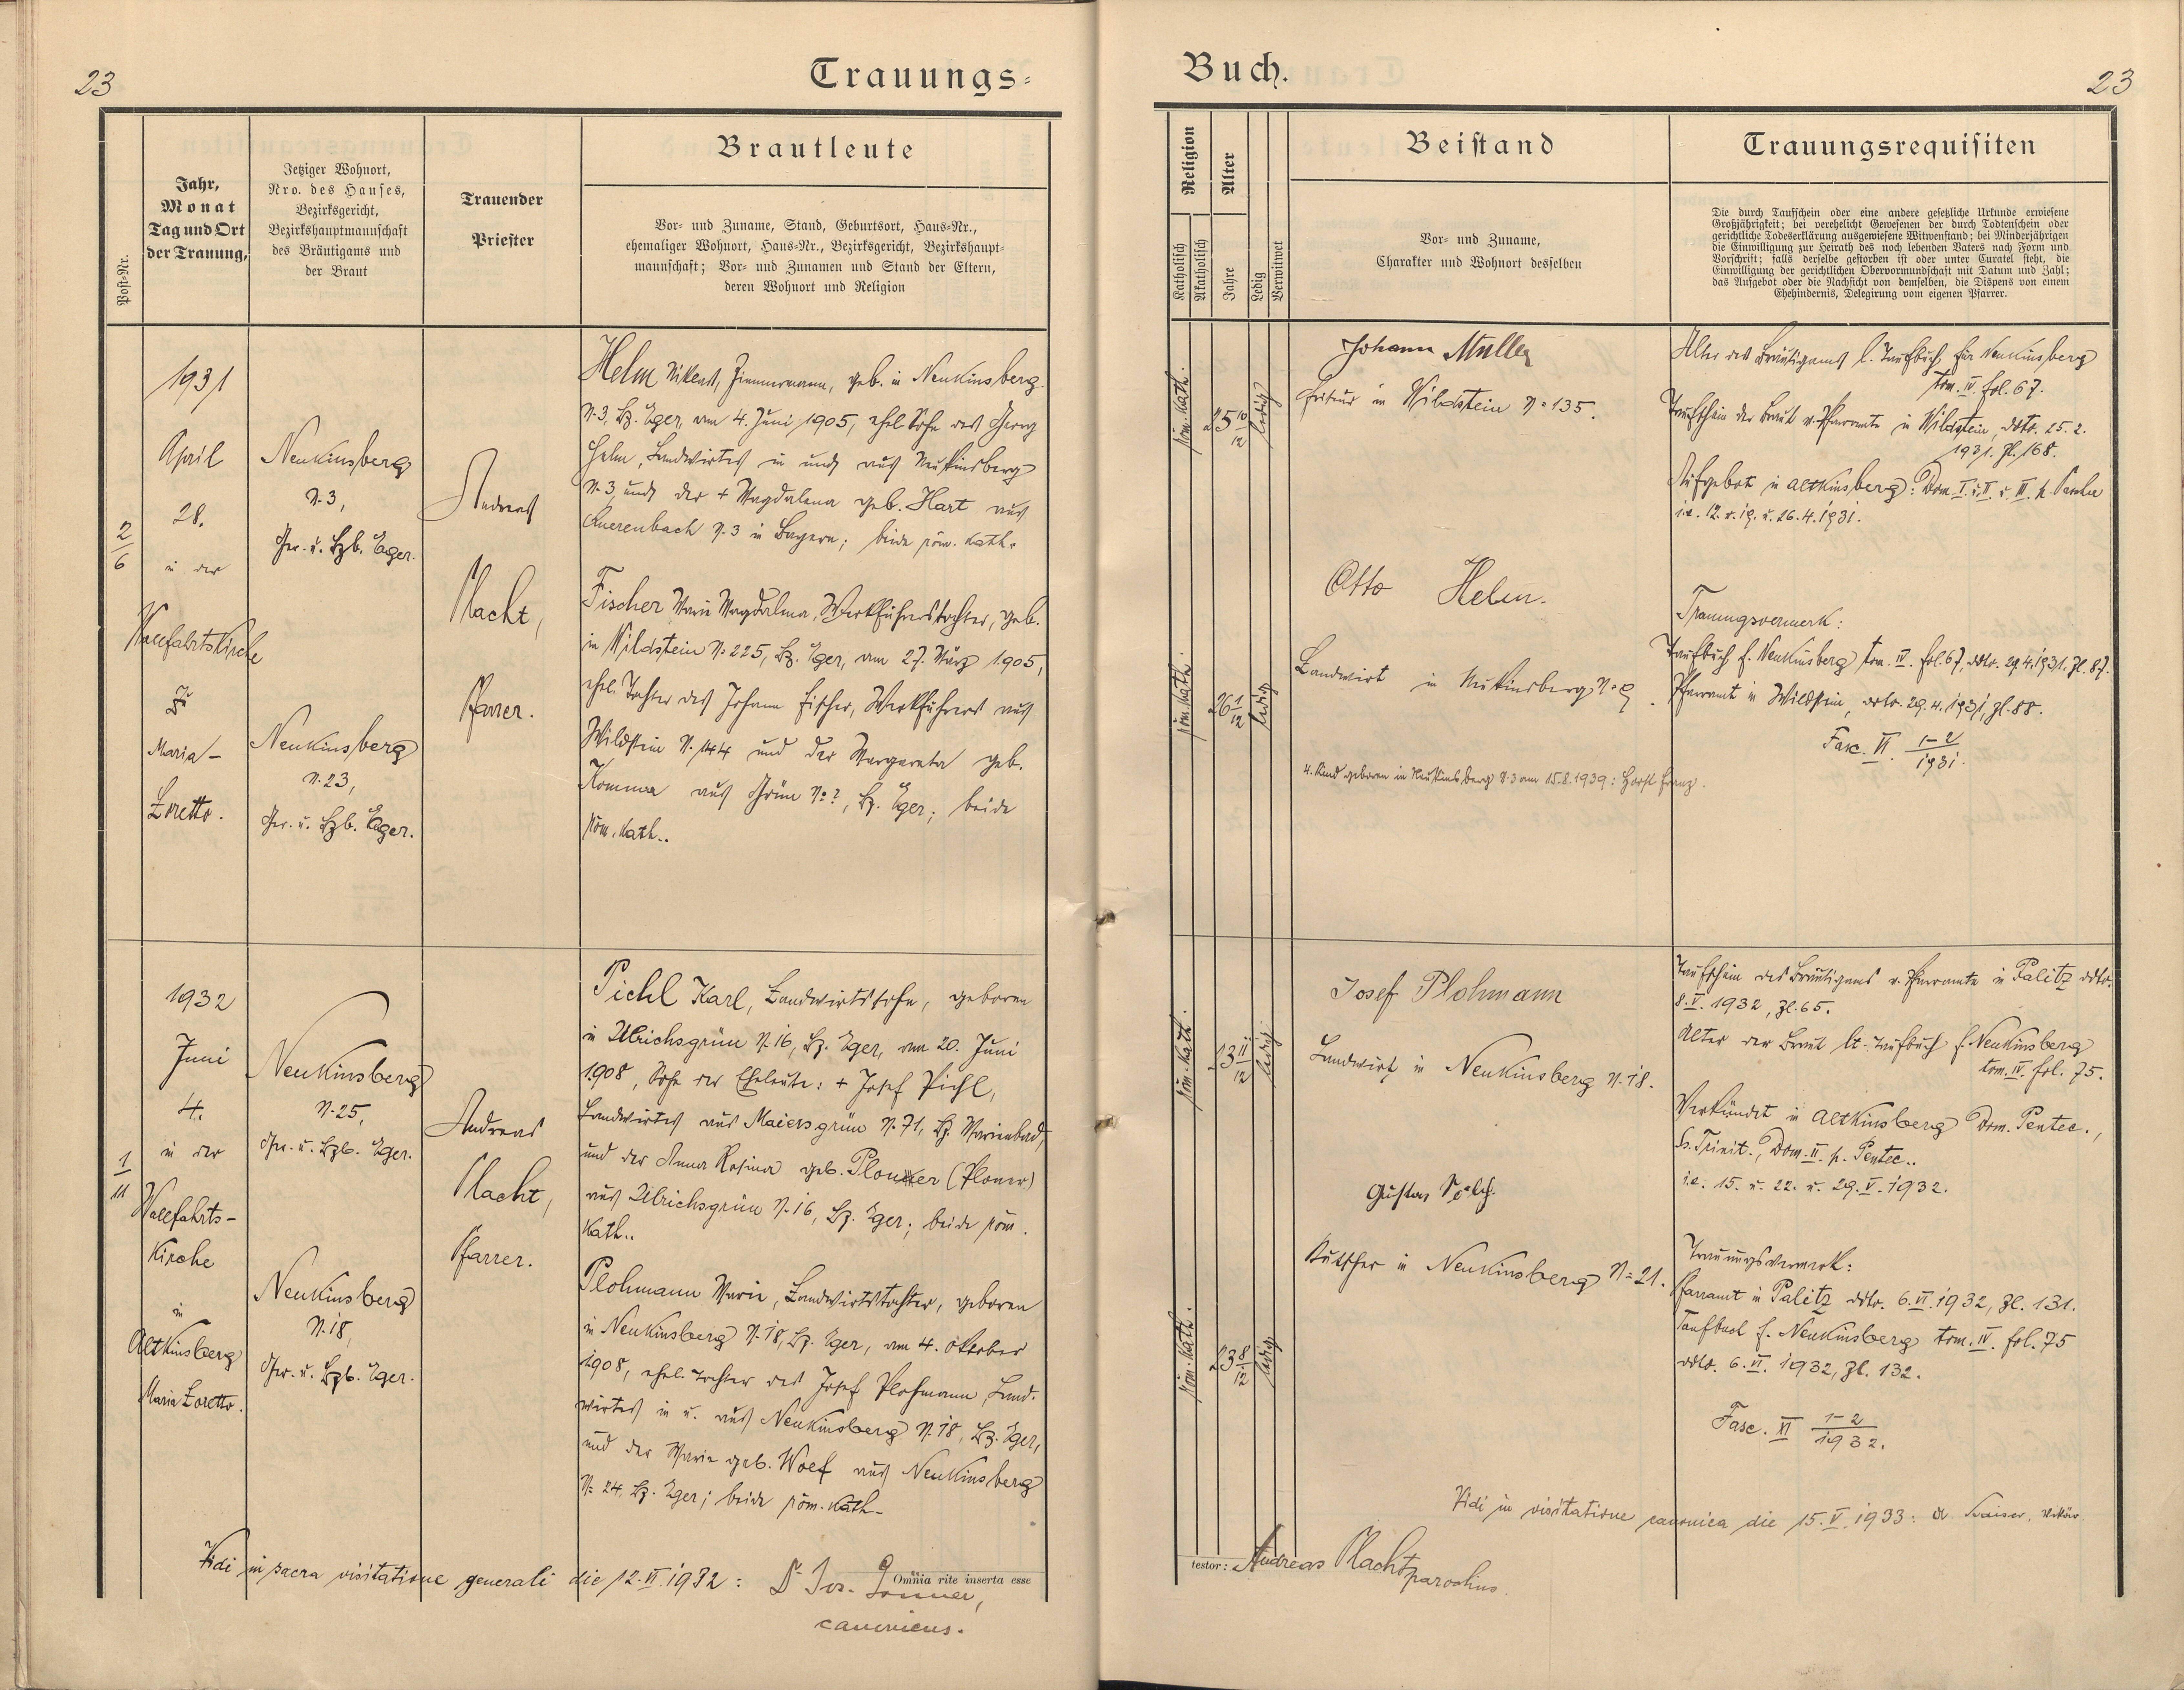 23
Trauungs-
Post-Nr.
Jahr,
Monat
Tag und Ort
der Trauung,
Jetziger Wohnort,
Nro. des Hauses,
Bezirksgericht,
Bezirkshauptmannschaft
des Bräutigams und
der Braut
Trauender
Priester
Brautleute
Vor- und Zuname, Stand, Geburtsort, Haus-Nr.,
ehemaliger Wohnort, Haus-Nr., Bezirksgericht, Bezirkshaupt-
mannschaft; Vor- und Zunamen und Stand der Eltern,
deren Wohnort und Religion
2
6
1931
April
28.
in der
Wallfahrtskirche
zu
Maria-
Loretto.
Neukinsberg
N. 3,
Ger. u. Bzb. Eger.
Neukinsberg
N. 23,
Ger. u. Bzb. Eger.
Andreas
Placht,
Pfarrer.
Helm Zimmermann, geb. in Neukinsberg
N. 3, Bz. Eger, am 4. Juni 1905, ehel. Sohn des Georg
Helm, Landwirtes in und aus Neukinsberg
N. 3, und der + Magdalena geb. Hart aus
Querenbach N. 3 in Bayern; beide röm. kath.
Fischer Marie Magdalena, Werkführerstochter, geb.
in Wildstein N. 225, Bz. Eger, am 27. März 1905,
ehel. Tochter des Johann Fischer, Werkführers aus
Wildstein N. 144 und der Margareta geb.
Komma aus Grün No ?, Bz. Eger; beide
röm. kath..
1
11
1932
Juni
4.
in der
Wallfahrts-
Kirche
in
Altkinsberg
Maria Loretto.
Neukinsberg
N. 25,
Ger. u. Bzb. Eger.
Neukinsberg
N. 18,
Ger. u. Bzb. Eger.
Andreas
Placht,
Pfarrer.
Pichl Karl, Landwirtssohn, geboren
in Ulrichsgrün N. 16, Bz. Eger, am 20. Juni
1908, Sohn der Eheleute: + Josef Pichl,
Landwirtes aus Maiersgrün N. 71, Bz. Marienbad,
und der Anna Rosina geb. Ploner (Ploner)
aus Ulrichsgrün N. 16, Bz. Eger; beide röm.
kath..
Plohmann Marie, Landwirtstochter, geboren
in Neukinsberg N. 18, Bz. Eger, am 4. Oktober
1908, ehel. Tochter des Josef Plohmann, Land-
wirtes in u. aus Neukinsberg N. 18, Bz. Eger,
und der Marie geb. Wolf aus Neukinsberg
N= 24, Bz. Eger; beide röm. kath.
Vidi in sacra visitatione generali die 12. VI. 1932: Dr. Jos.
canonicus.
Omnia rite inserta esse
Buch.
23
Religion
Katholisch
Akatholisch
Alter
Jahre
Ledig
Verwitwet
Beistand
Vor- und Zuname,
Charakter und Wohnort desselben
Trauungsrequisiten
Die durch Taufschein oder eine andere gesetzliche Urkunde erwiesene
Großjährigkeit; bei verehelicht Gewesenen der durch Todtenschein oder
gerichtliche Todeserklärung ausgewiesene Witwenstand; bei Minderjährigen
die Einwilligung zur Heirath des noch lebenden Vaters nach Form und
Vorschrift; falls derselbe gestorben ist oder unter Curatel steht, die
Einwilligung der gerichtlichen Obervormundschaft mit Datum und Zahl;
das Aufgebot oder die Nachsicht von demselben, die Dispens von einem
Ehehindernis, Delegirung vom eigenen Pfarrer.
röm. kath.
25 10/12
ledig
Johann Müller
Friseur in Wildstein N= 135.
röm. kath.
26 1/12
ledig
Otto Helm.
Landwirt in Neukinsberg N= 9
4. Kind geboren in Neukinsberg N. 3 am 15.8.1939: Horst Franz.
Alter des Bräutigams l. Taufbuch für Neukinsberg
tom. IV. fol. 67.
Taufschein der Braut v. Pfarramte in Wildstein, ddto. 25. 2.
1931. Zl. 168.
Aufgebot in Altkinsberg: Dom. I. u. II. u. III. p. Pascha
i.e. 12. u. 19. u. 26. 4. 1931.
Trauungsvermerk:
Taufbuch f. Neukinsberg tom. IV. fol. 67, ddto. 29.4.1931. Zl. 87.
Pfarramt in Wildstein, ddto. 29. 4. 1931, Zl. 88.
Fasc. VI 1-2
1931.
röm. kath.
23 11/12
ledig
Josef Plohmann
Landwirt in Neukinsberg N. 18.
röm. kath.
23 8/12
ledig
Gustav
Kutscher in Neukinsberg N= 21.
Taufschein des Bräutigams v. Pfarramte in Palitz ddto.
8. V. 1932, Zl. 65.
Alter der Braut lt. Taufbuch f. Neukinsberg
tom. IV. fol. 75.
Verkündet in Altkinsberg Dom. Pentec.,
Ss. Trinit., Dom. II. p. Pentec..
i.e. 15. u. 22. u. 29. V. 1932.
Trauungsvermerk:
Pfarramt in Palitz ddto. 6. VI. 1932, Zl. 131.
Taufbuch f. Neukinsberg tom. IV. fol. 75
ddto. 6. VI. 1932, Zl. 132.
Fasc. XI 1-2
1932.
Vidi in visitatione canonica die 15. V. 1933: Kaiser, Vikär
testor: Andreas Placht, parochus.